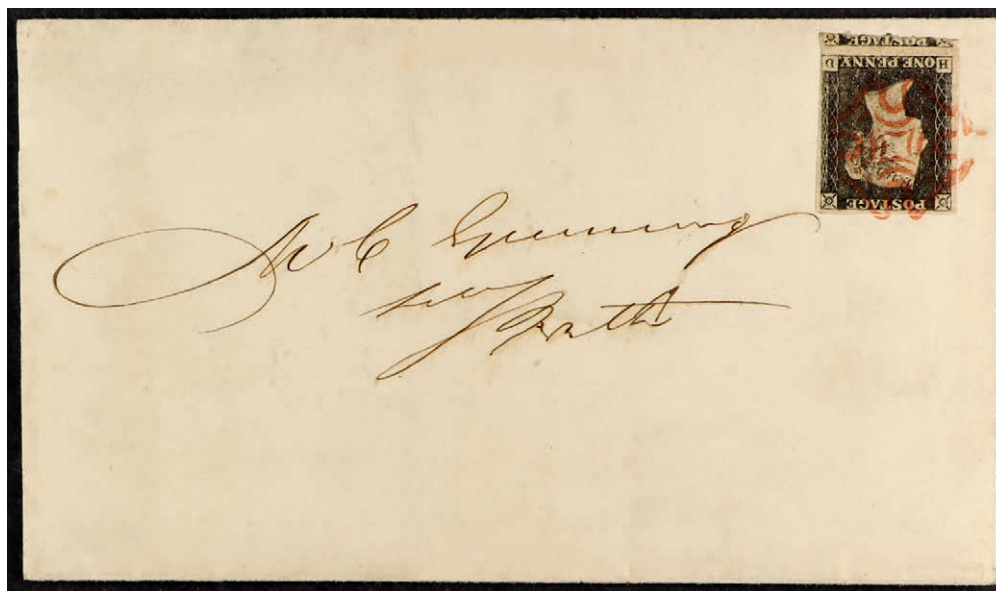 POSTAGE
D ONE PENNY H
POSTAGE
Mr C Gunning
Bath